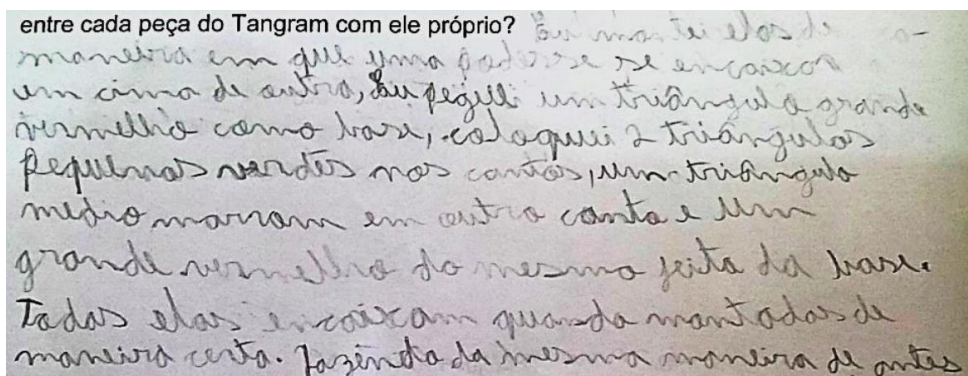 entre cada peça do Tangram com ele próprio? Eu montei elas de
maneira em que uma pudesse se encaixar
um cima de outro, Eu peguei um triângulo grande
vermelho como base, coloquei 2 triângulos
pequenos verdes nos cantos, um triângulo
médio marrom em outro canto e um
grande vermelho do mesmo jeito da base.
Todas elas encaixam quando montadas de
maneira certa. Fazendo da mesma maneira de antes